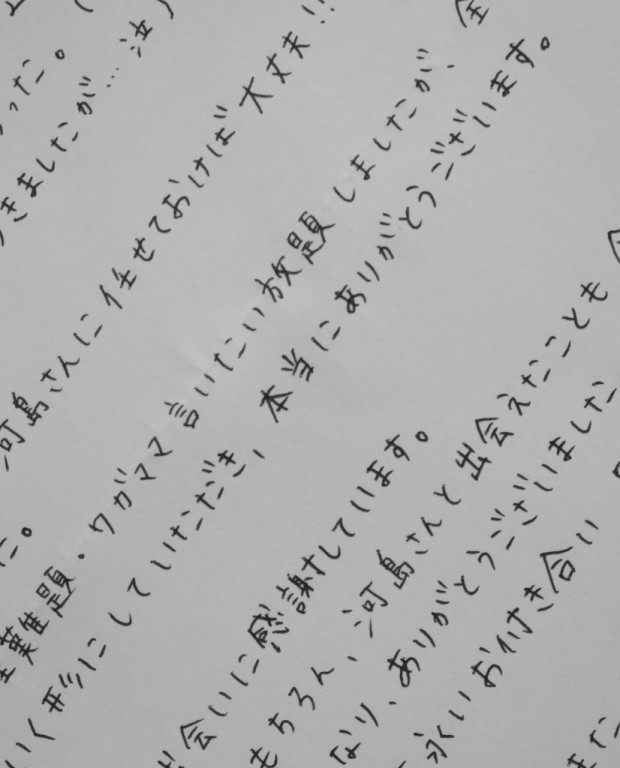 った。
きましたが…泣）
河島さんに任せておけば大丈夫!!
た。
難題・ワガママ言いたい放題しましたが、全
いく形にしていただき、本当にありがとうございます。
出会いに感謝しています。
もちろん、河島さんと出会えたことも
なり、ありがとうございました
永いお付き合い
また